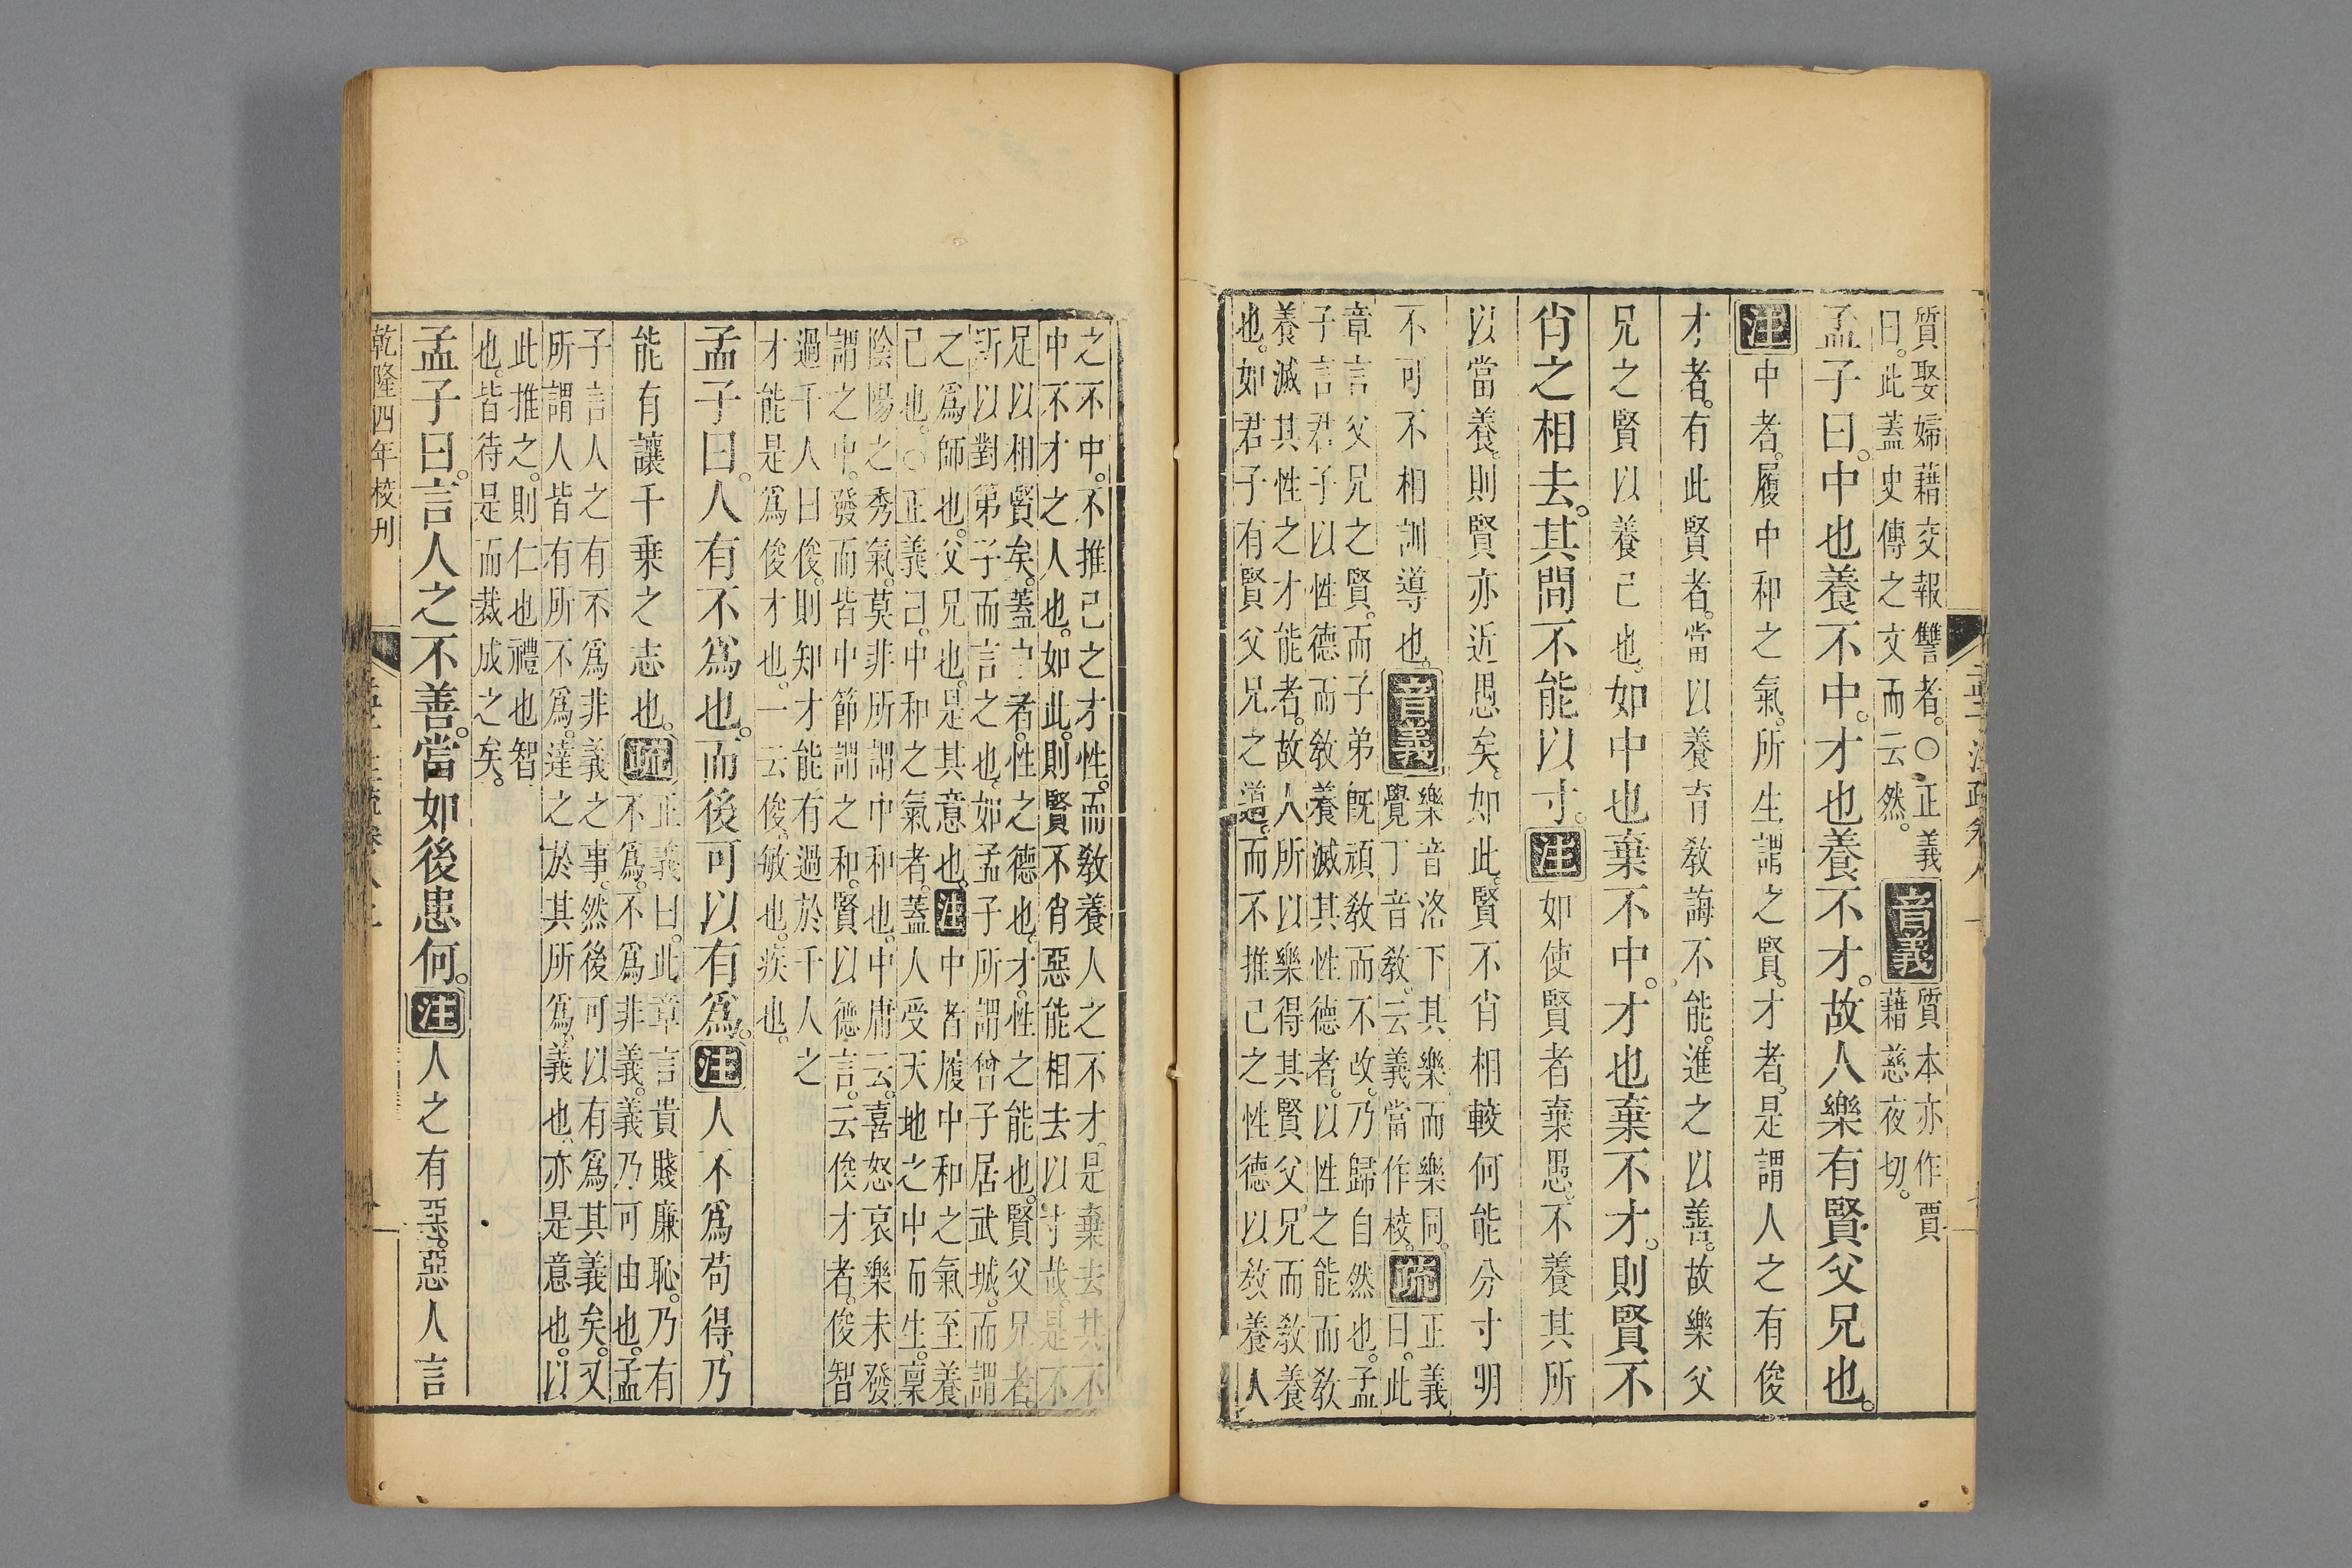 質娶婦藉交報讐者。○正義
曰。此蓋史傳之文而云然。
音義
質本亦作賈
藉慈夜切。
孟子曰。中也養不中。才也養不才。故人樂有賢父兄也。
注中者。履中和之氣。所生謂之賢。才者。是謂人之有俊
才者。有此賢者。當以養育敎誨不能。進之以善。故樂父
兄之賢以養己也。如中也棄不中。才也棄不才。則賢不
肖之相去。其間不能以寸。注如使賢者棄愚。不養其所
以當養。則賢亦近愚矣。如此。賢不肖相較何能分寸明
不可不相訓導也。音義
樂音洛下其樂而樂同。
覺丁音敎。云義當作校。
疏
正義
曰。此
章言父兄之賢。而子弟旣頑敎而不改。乃歸自然也。孟
子言君子以性德而敎養滅其性德者。以性之能而敎
養滅其性之才能者。故人所以樂得其賢父兄。而敎養
也。如君子有賢父兄之道。而不推己之性德以敎養人
之不中。不推己之才性。而敎養人之不才。是棄去其不
中不才之人也。如此。則賢不肖惡能相去以寸哉。是不
足以相賢矣。蓋中者。性之德也。才。性之能也。賢父兄者。
所以對弟子而言之也。如孟子所謂曾子居武城。而謂
之爲師也。父兄也。是其意也。注中者履中和之氣至養
己也。○正義曰。中和之氣者。蓋人受天地之中而生。稟
陰陽之秀氣。莫非所謂中和也。中庸云。喜怒哀樂未發
謂之中。發而皆中節謂之和。賢以德言。云俊才者。俊智
過千人曰俊。則知才能有過於千人之
才能是爲俊才也。一云俊。敏也。疾也。
孟子曰。人有不爲也。而後可以有爲。注人不爲苟得。乃
能有讓千乘之志也。疏
正義曰。此章言貴賤廉恥。乃有
不爲。不爲非義。義乃可由也。孟
子言人之有不爲非義之事。然後可以有爲其義矣。又
所謂人皆有所不爲。達之於其所爲。義也。亦是意也。以
此推之。則仁也禮也智
也。皆待是而裁成之矣。
孟子曰。言人之不善。當如後患何。注人之有惡。惡人言
乾隆四年校刊